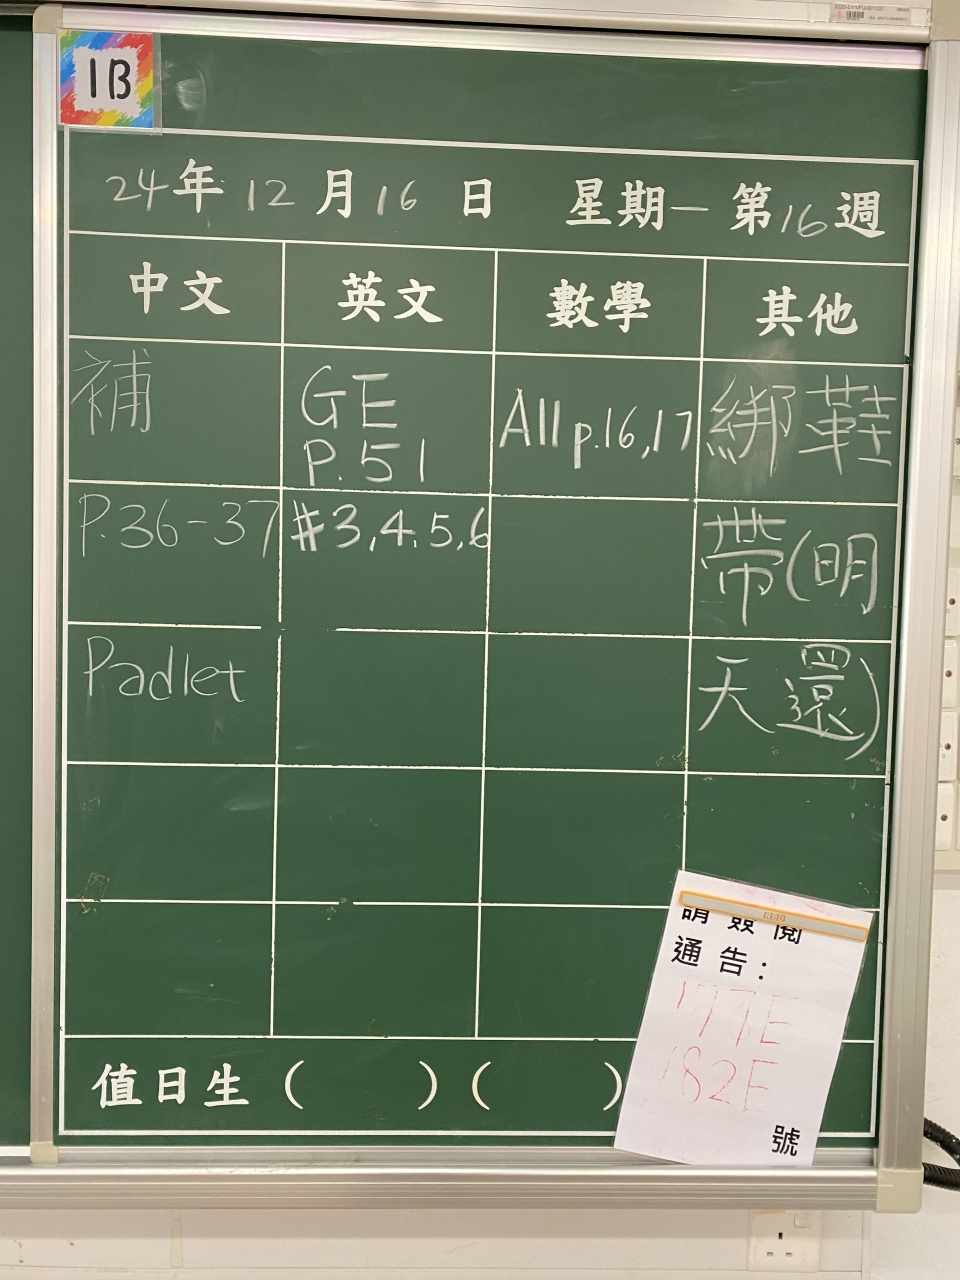 1B
24年12月16日 星期一 第16週
中文 英文 數學 其他
補 GE P.51 All p.16,17 綁鞋
P.36-37 #3,4,5,6 帶(明
Padlet 天還)
請簽閱
通告:
177E
182E
號
值日生 ( ) ( )